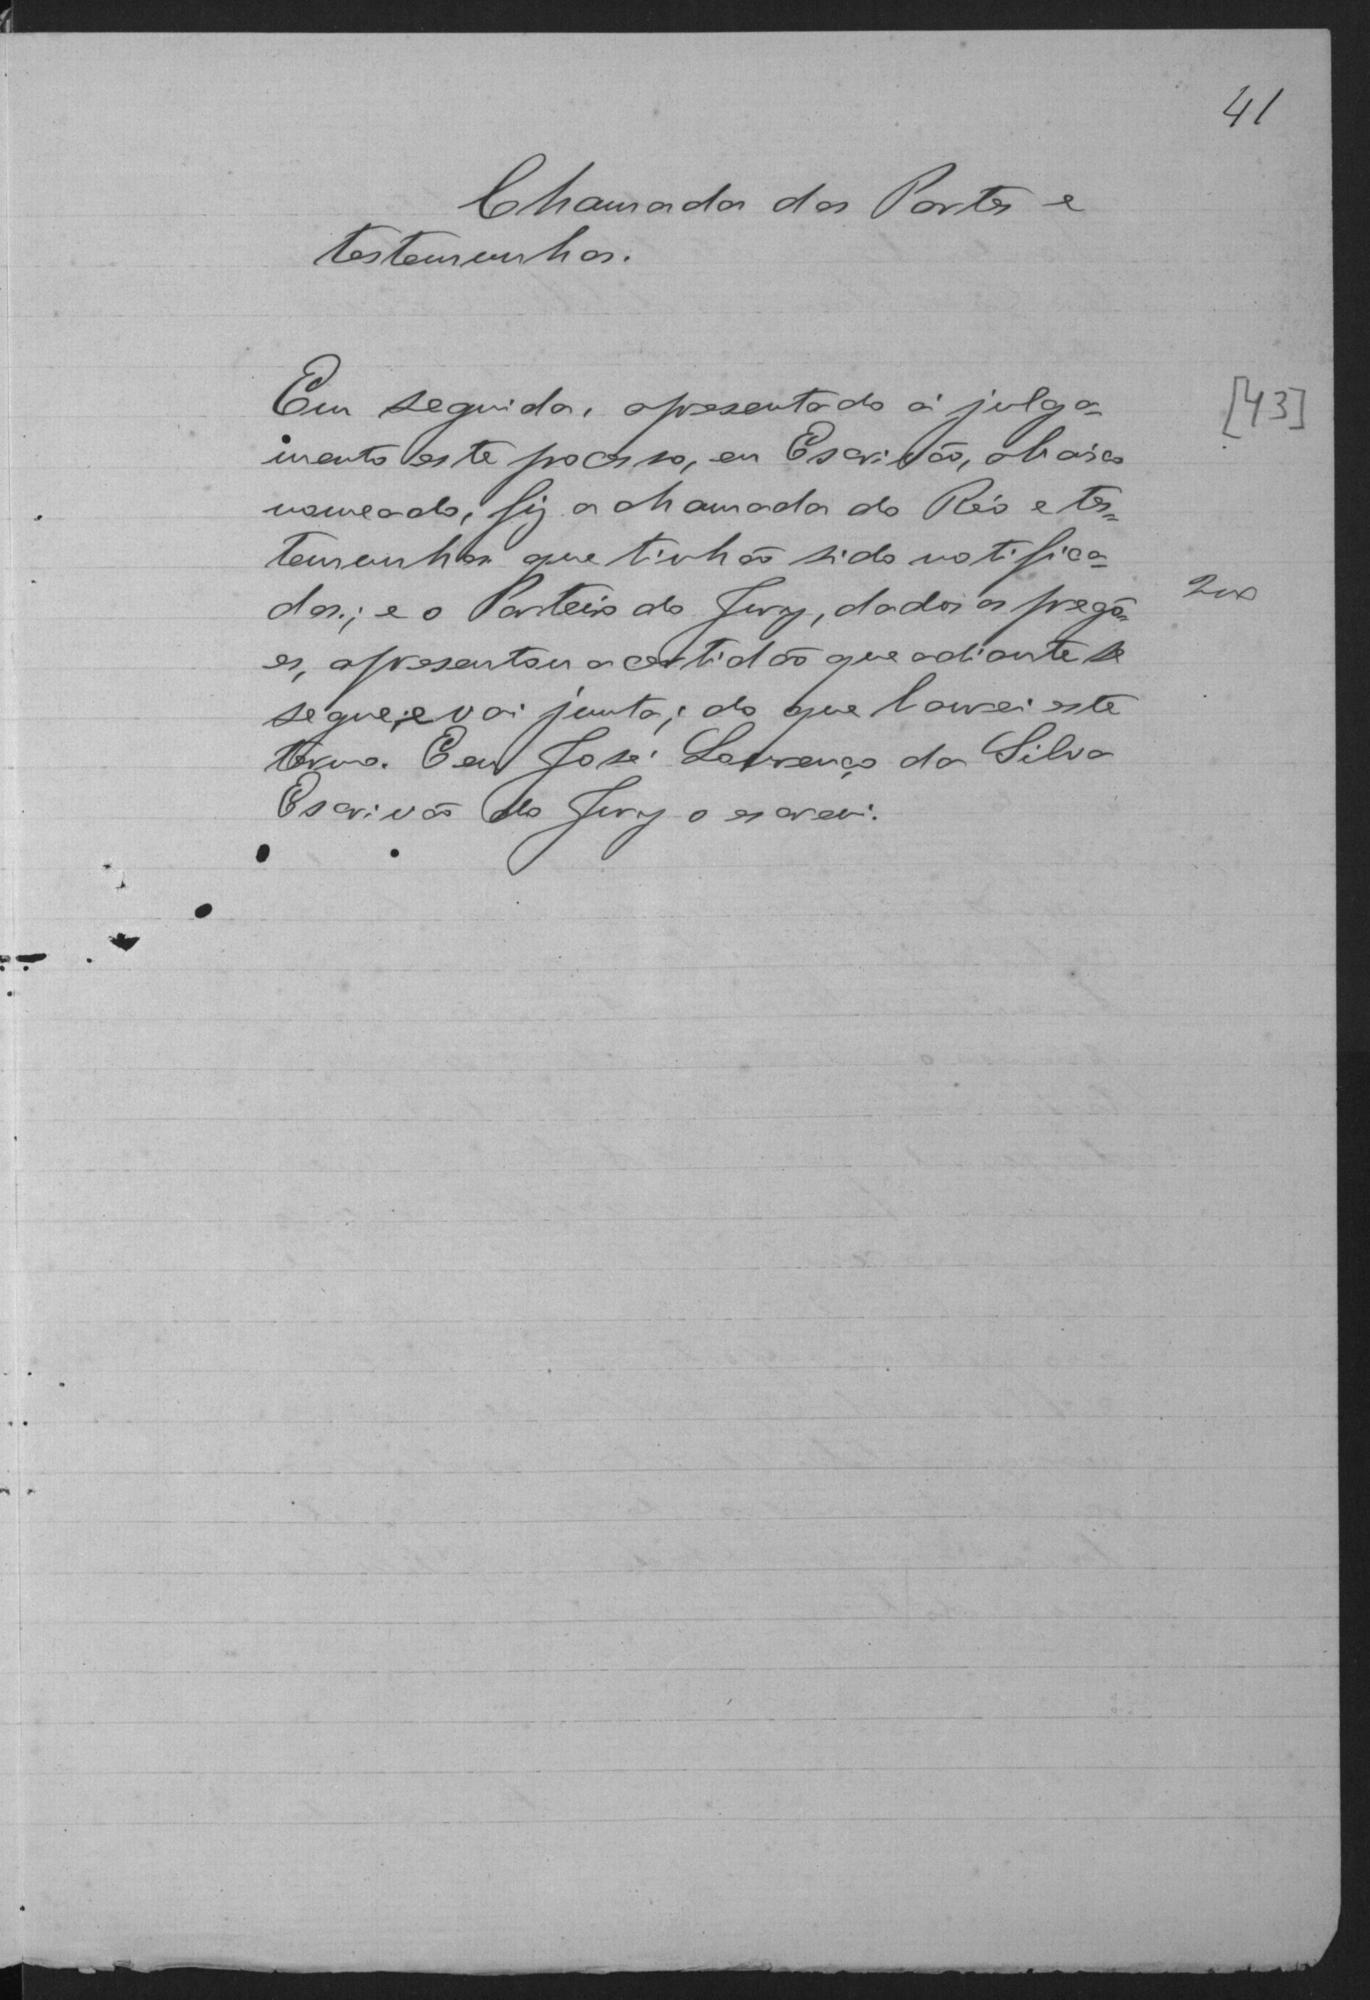 41
Chamada das Partes e
testemunhas.
Em seguida, apresentado á julga=
[43]
mento este processo, eu Escrivão, abaixo
nomeado, fiz a chamada do Réo e tes=
temunhas que tinhão sido notifica=
das; e o Porteiro do Jury, dados os pregõ=
200
es, apresentou a certidão que adiante se
segue, e vai junta; do que lavrei este
termo. Eeu José Lourenço da Silva
Escrivão do Jury o escrevi.